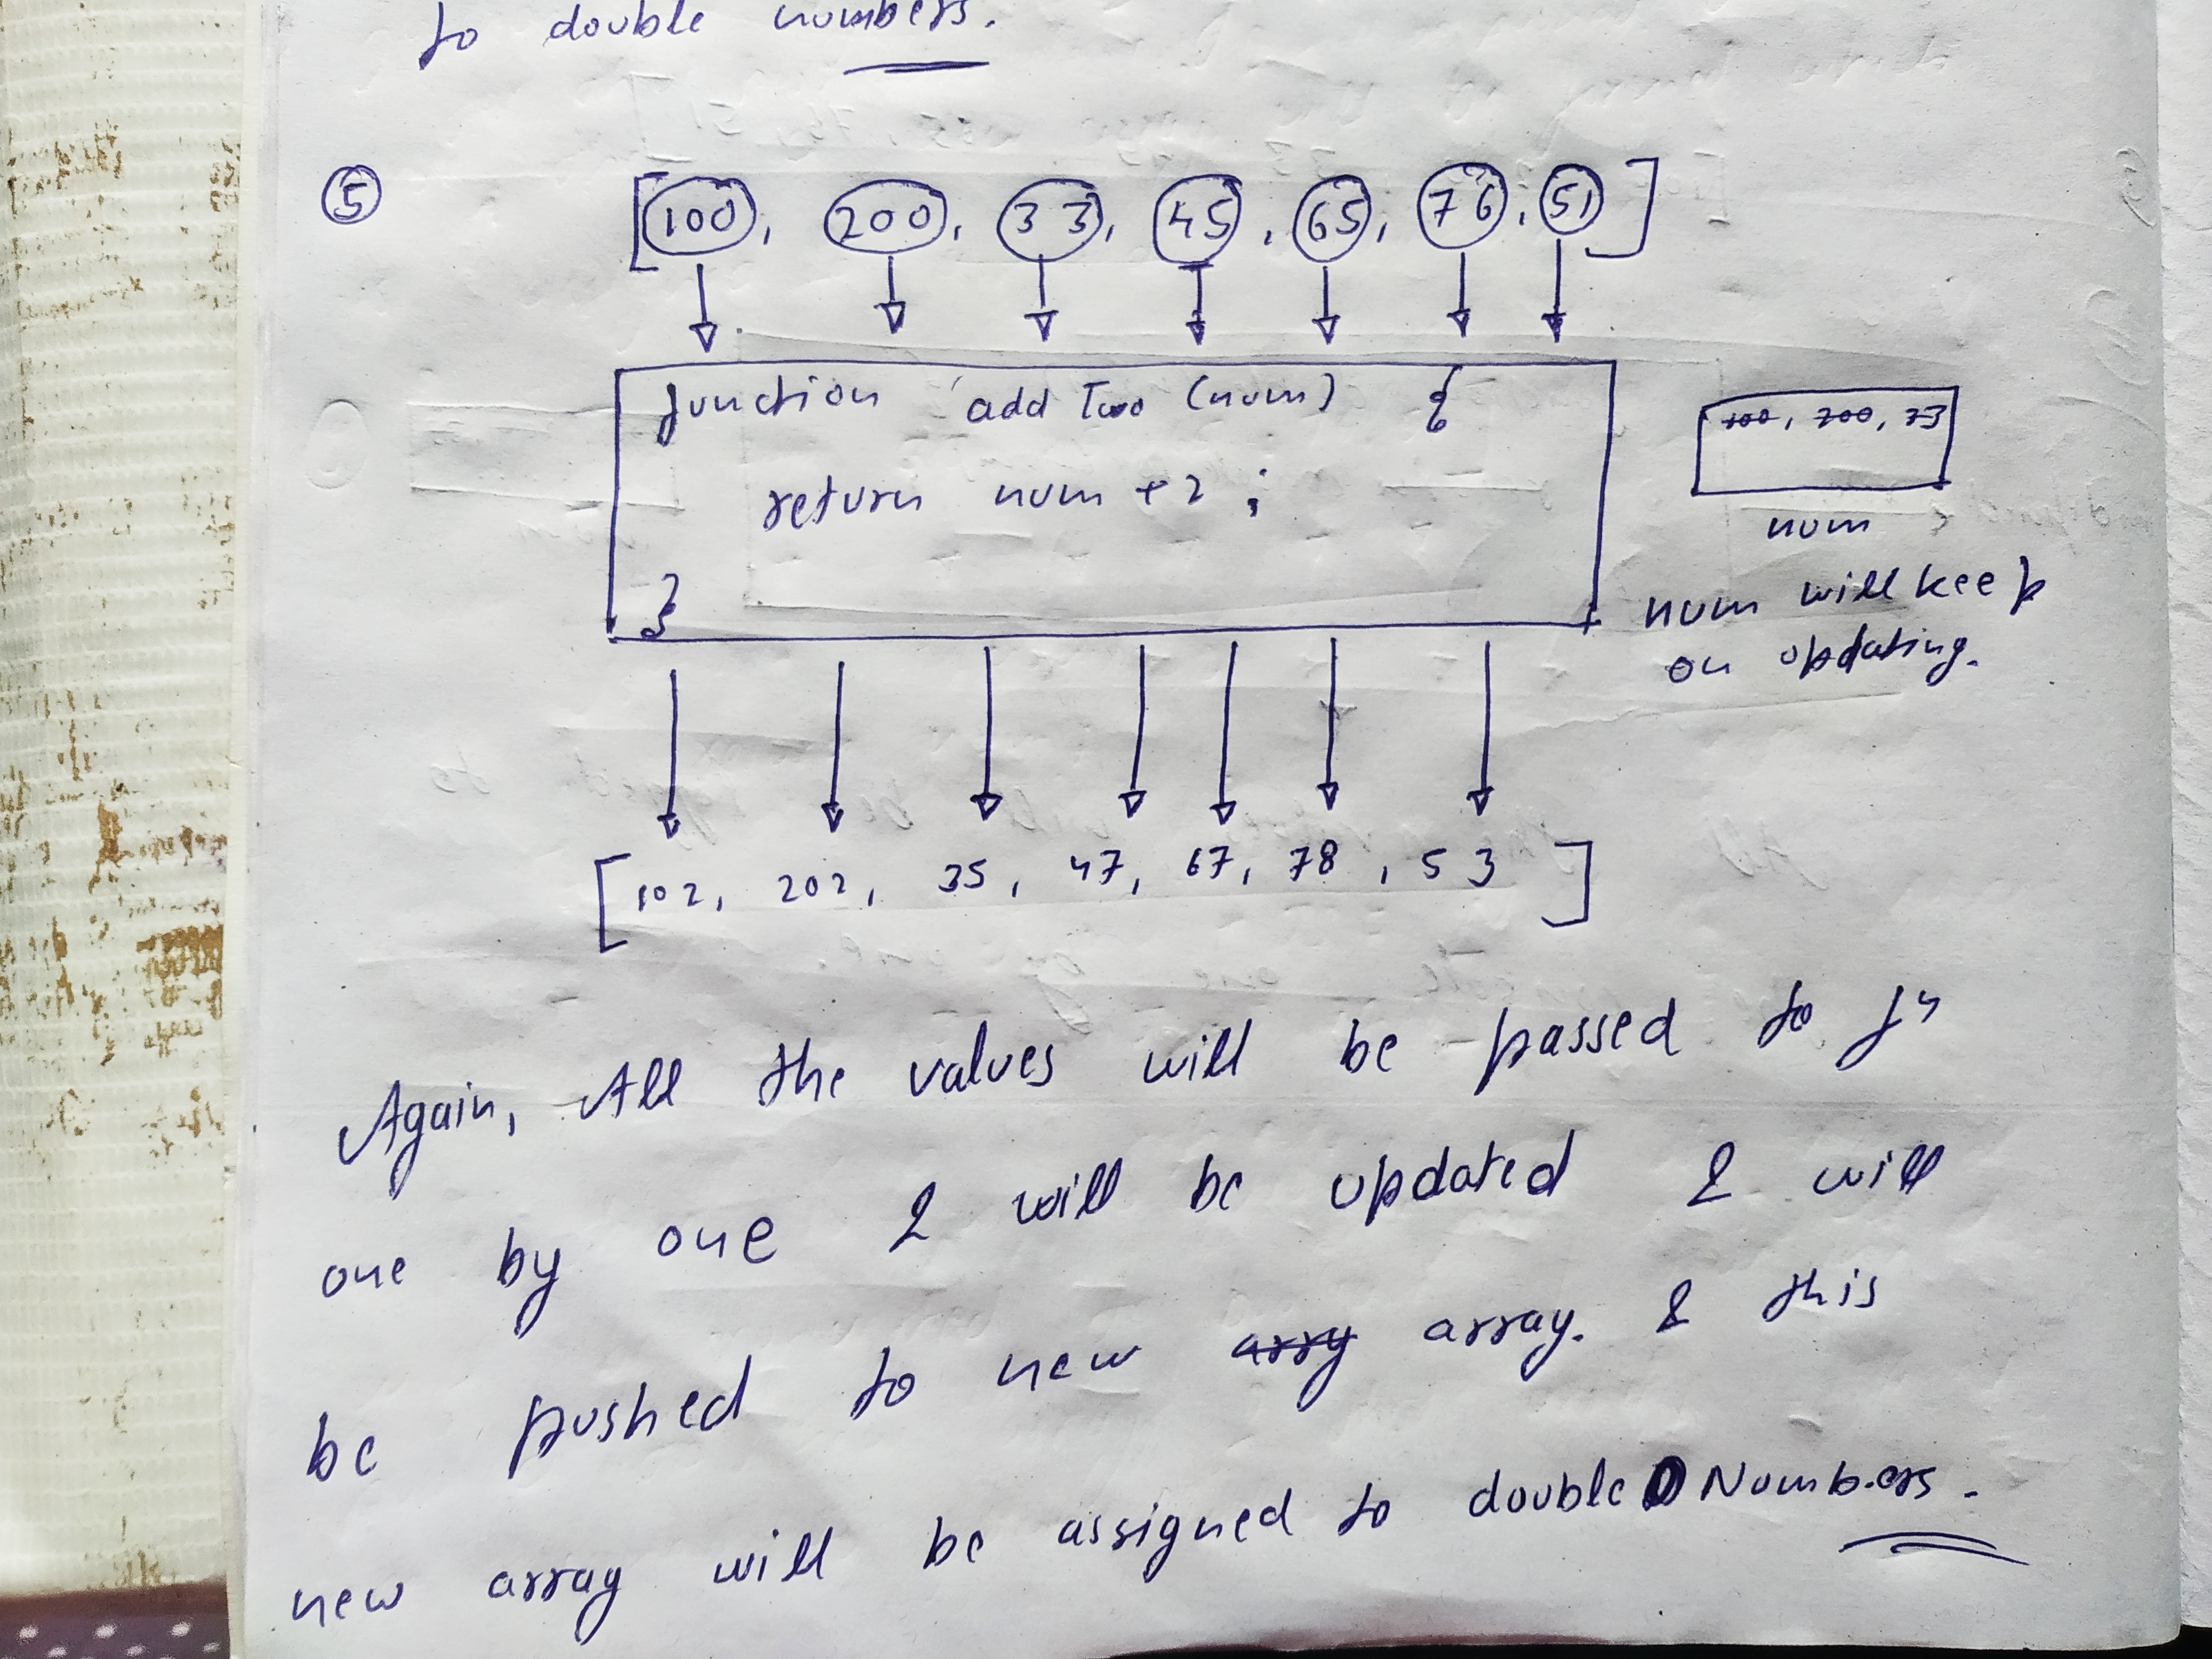 to double numbers.
⑤
[100, 200, 33, 45, 65, 76, 51]
function addTwo (num) {
return num + 2 ;
}
100, 200, 33
num
num will keep
on updating.
[102, 202, 35, 47, 67, 78, 53]
Again, All the values will be passed to fn
one by one & will be updated & will
be pushed to new arry array. & this
new array will be assigned to double Numbers.